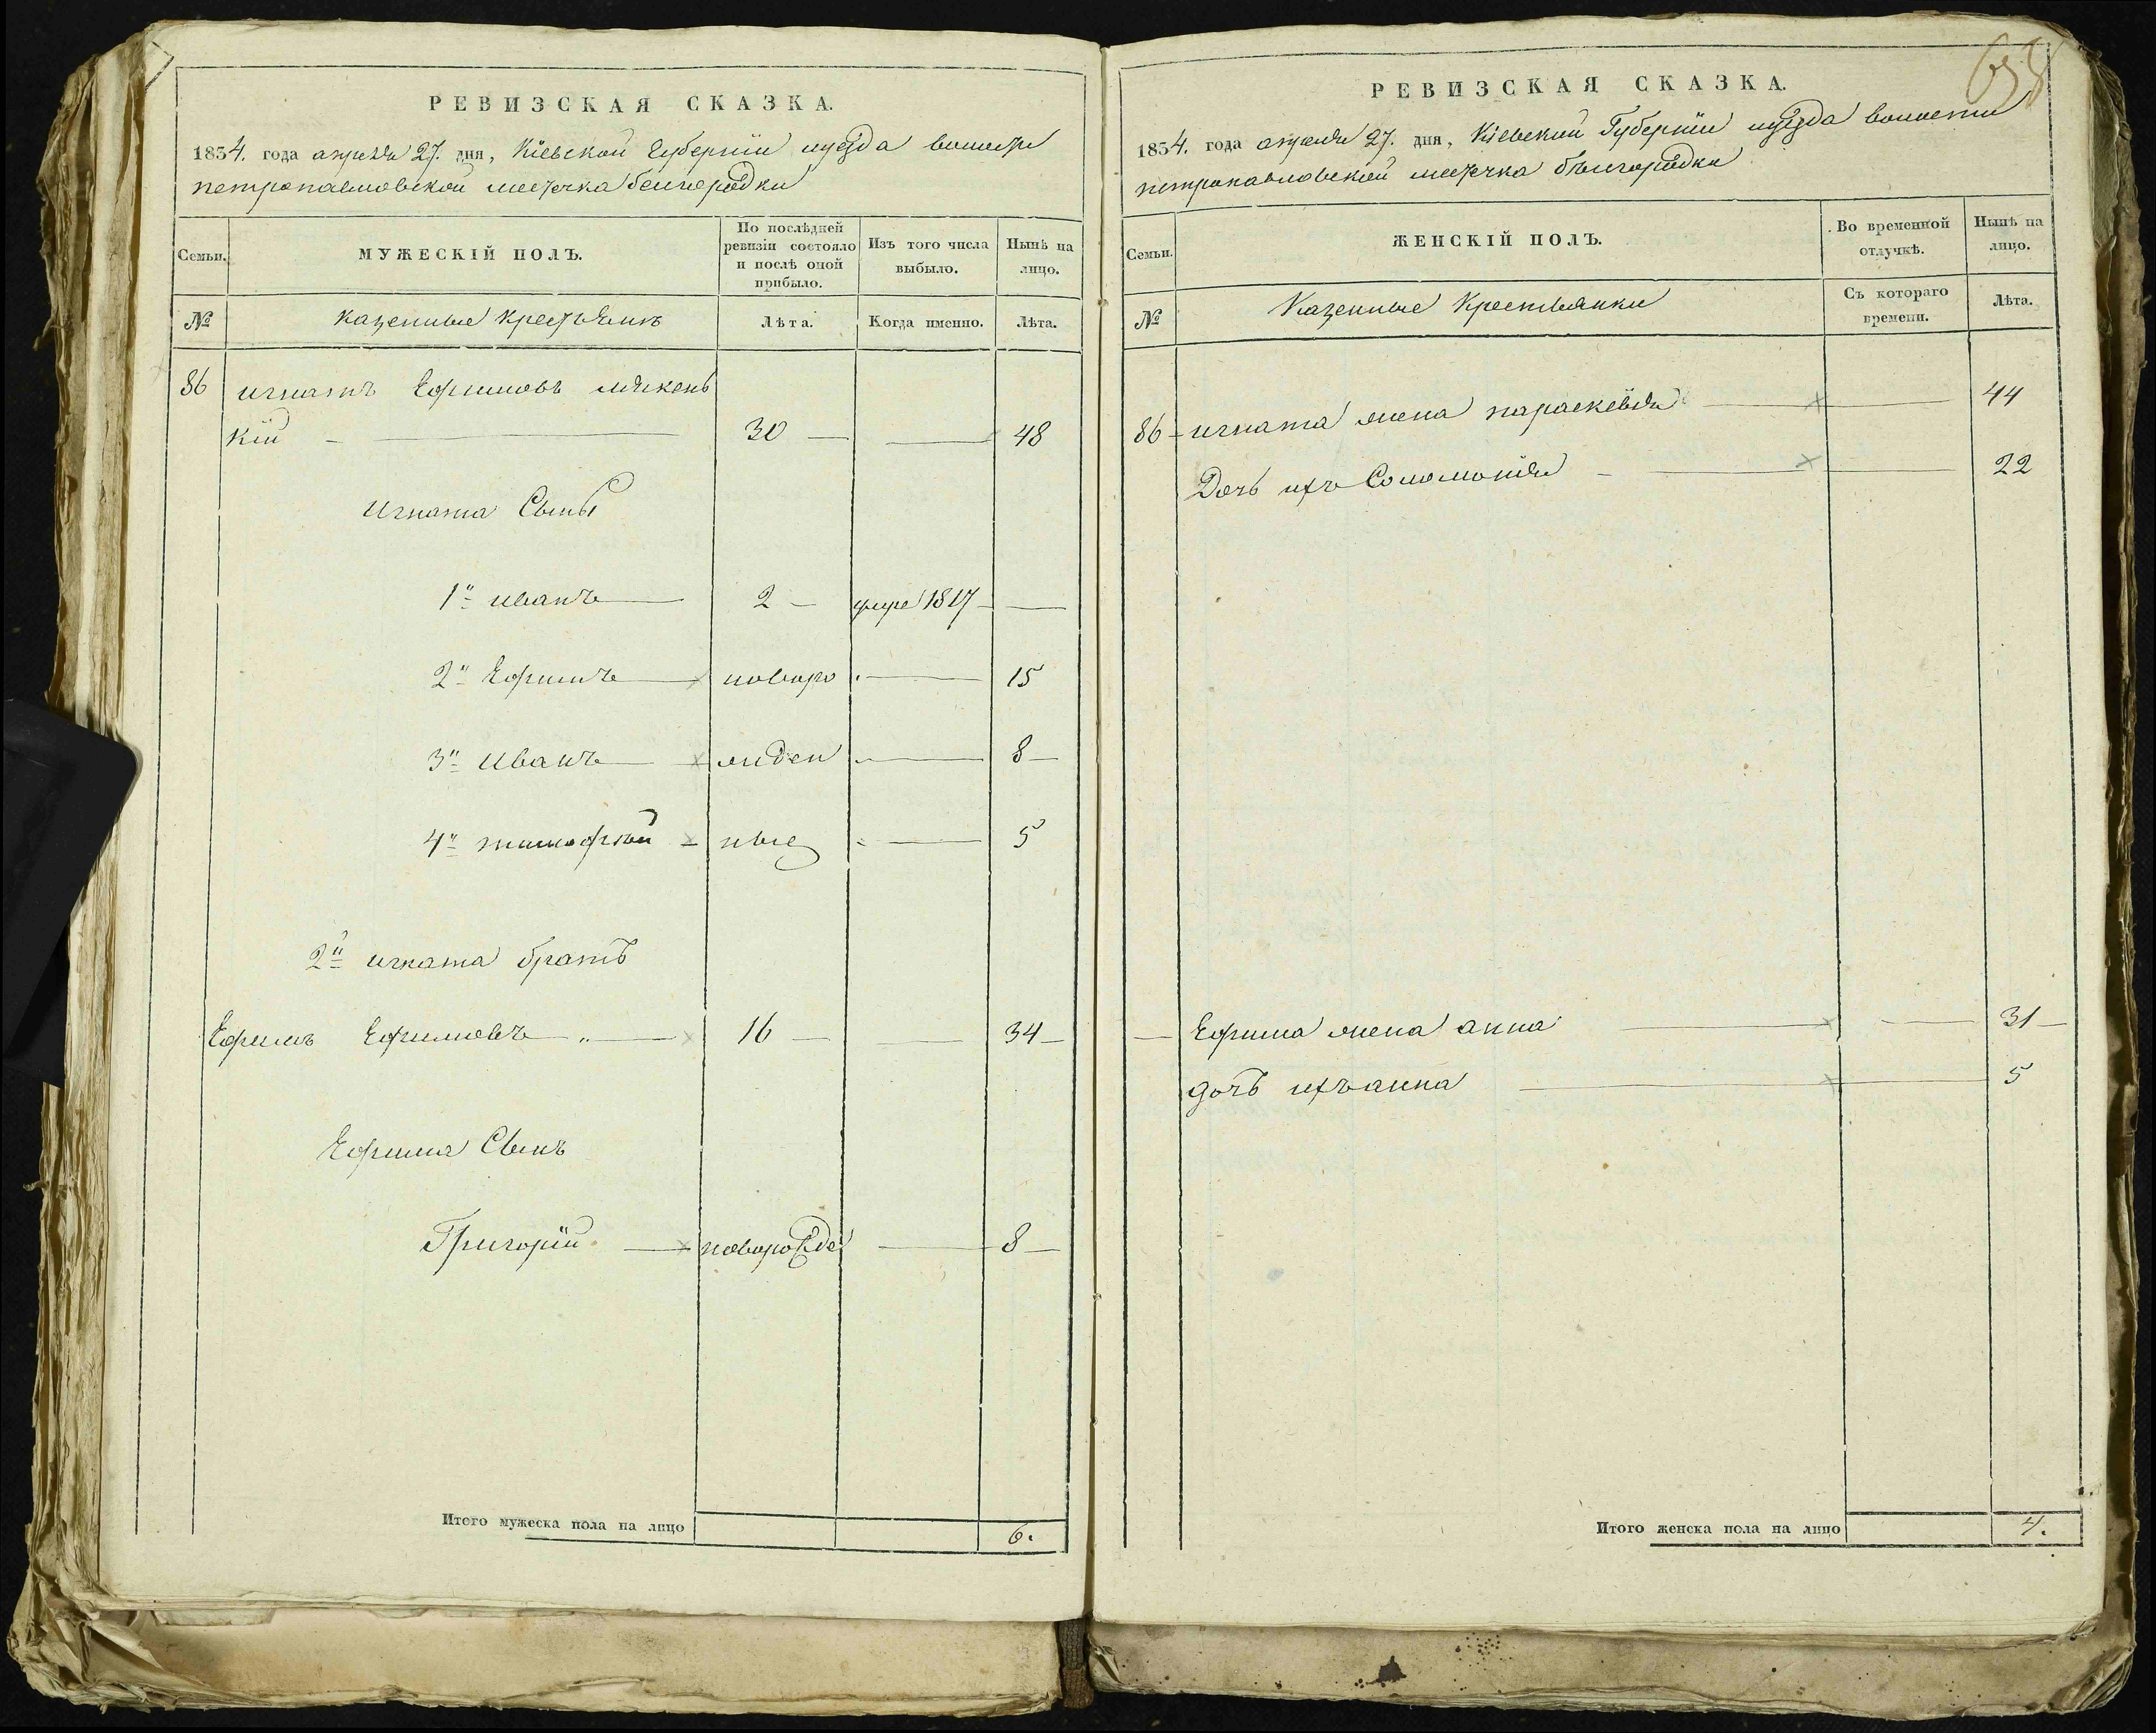 РЕВИЗСКАЯ СКАЗКА.
1834. года апреля 27. дня, Кіевской Губерніи и уезда волости
петропавловской местечка белгородки
Семьи.
МУЖЕСКІЙ ПОЛЪ.
По послѣдней
ревизіи состояло
и послѣ оной
прибыло.
Изъ того числа
выбыло.
Нынѣ на
лицо.
№
казенные крестьяне
Лѣта.
Когда именно.
Лѣта.
86 игнатъ Ефимовъ
кій 30 48
игната Сыны
1й иванъ 2 умре 1817
2й Ефимъ новоро 15
3й иванъ жден 8
4й тимофѣй ные 5
2й игната братъ
Ефимъ Ефимовъ 16 34
Ефима Сынъ
Григорій новорожде 8
Итого мужеска пола на лицо 6.
658
РЕВИЗСКАЯ СКАЗКА.
1834. года апреля 27. дня, Кіевской Губерніи и уезда волости
петропавловской местечка бѣлгородки
Семьи.
ЖЕНСКІЙ ПОЛЪ.
Во временной
отлучкѣ.
Нынѣ на
лицо.
№
Казенные Крестьянки
Съ котораго
времени.
Лѣта.
86 игната жена параскевія 44
Дочь ихъ Соломонія 22
Ефима жена анна 31
дочь ихъ анна 5
Итого женска пола на лицо 4.